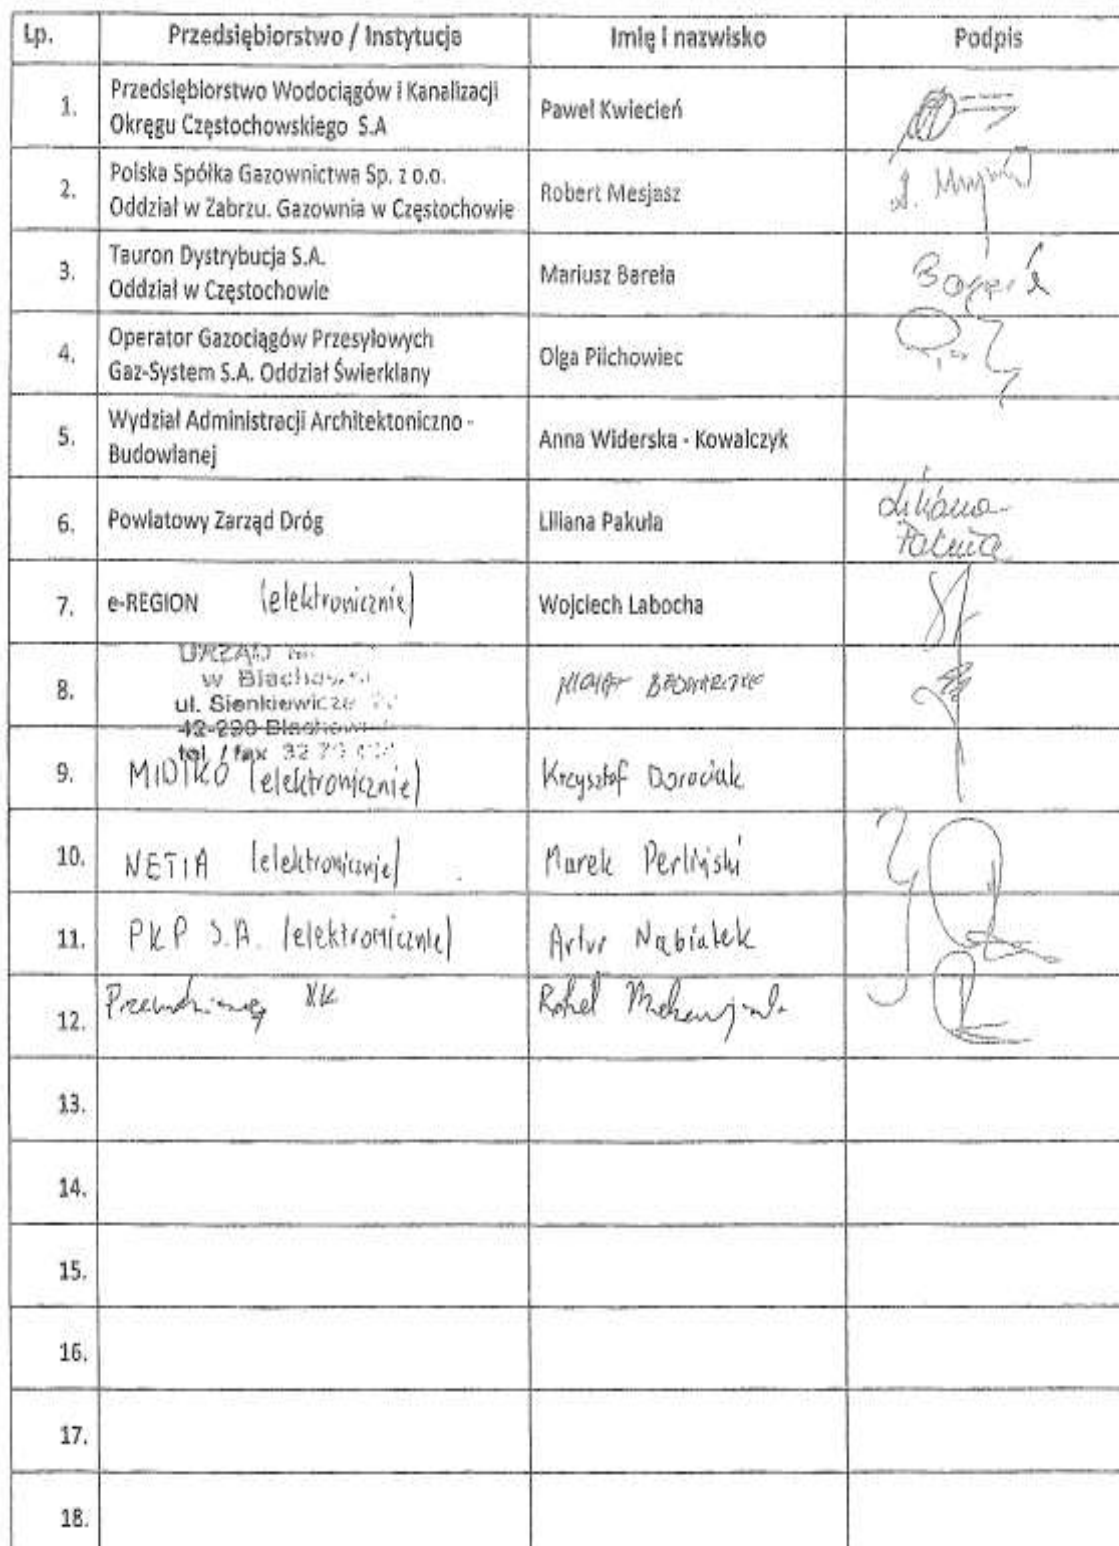 Lp. Przedsiębiorstwo / Instytucja Imię i nazwisko Podpis
1. Przedsiębiorstwo Wodociągów i Kanalizacji
Okręgu Częstochowskiego S.A Paweł Kwiecień
2. Polska Spółka Gazownictwa Sp. z o.o.
Oddział w Zabrzu. Gazownia w Częstochowie Robert Mesjasz
3. Tauron Dystrybucja S.A.
Oddział w Częstochowie Mariusz Bareła
4. Operator Gazociągów Przesyłowych
Gaz-System S.A. Oddział Świerklany Olga Pilchowiec
5. Wydział Administracji Architektoniczno -
Budowlanej Anna Widerska - Kowalczyk
6. Powiatowy Zarząd Dróg Liliana Pakuła Liliana
Pakuła
7. e-REGION (elektronicznie) Wojciech Labocha
8. URZĄD
w
ul. Sienkiewicza
42-290
tel. / fax
9. MIDIKO (elektronicznie) Krzysztof Dorociak
10. NETIA (elektronicznie) Marek Perliński
11. PKP S.A. (elektronicznie) Artur Nabiałek
12.
13.
14.
15.
16.
17.
18.